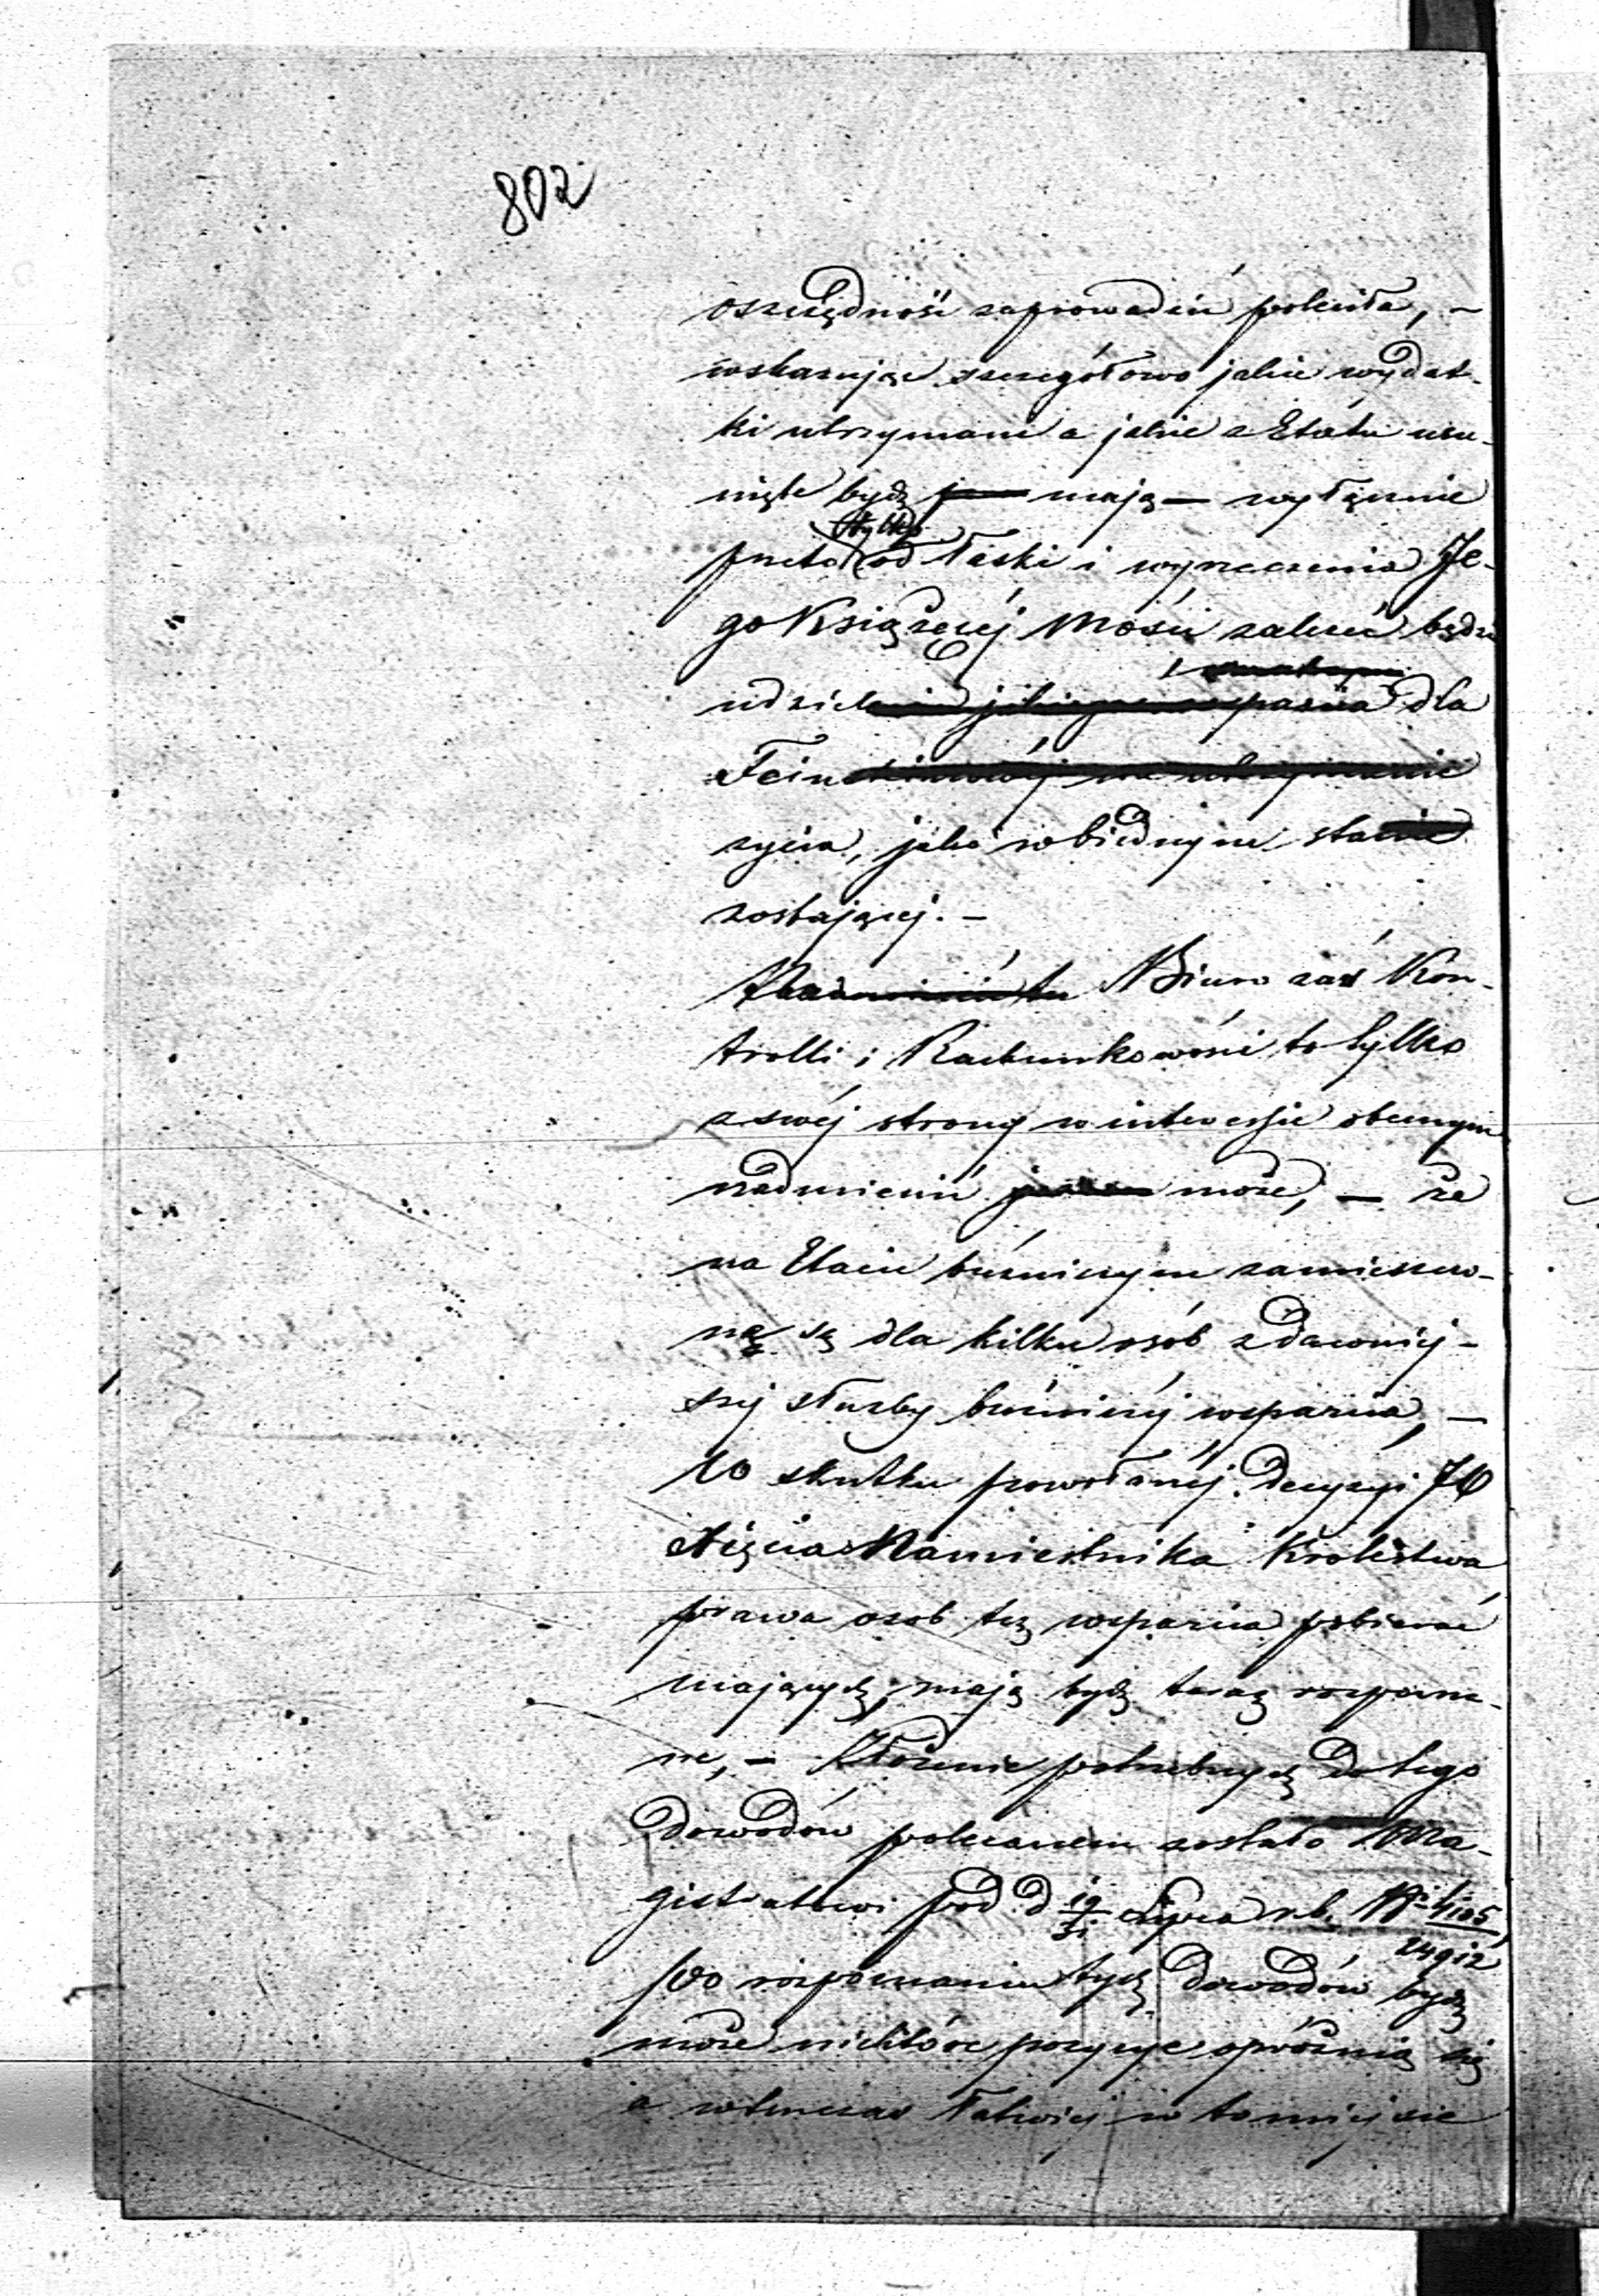 802
oszczędność zaprowadzić poleciła, —
wskazując szczegółowo jakie wydat-
ki utrzymane a jakie z Etatu usu-
nięte bydź mają — wyłącznie
tylko
przeto od łaski i wyrzeczenia Je-
go Książęcéj Mości zależeć będzie
udzielenie jakiego wsparcia dla
Fein
życia, jako w biednym stanie
zostającéj. —
Biuro zaś Kon-
trolli i Rachunkowości to tylko
z swéj strony w interessie obecnym
nadmienić może, — że
na Etacie bóżniczym zamieszczo-
ne są dla kilku osób z dawniej-
széj służby bóżniczéj wsparcia, —
W skutku powołanéj Decyzyi JO
Xięcia Namiestnika Królestwa
prawa osób też wsparcia pobierać
mających, mają bydź teraz rozpozna-
ne, — Złożenie potrzebnych do tego
Dowodów polecanem zostało Ma-
gistratowi pod d 19/31 Lipca r.b. No 4105/24912,
po rozpoznaniu tych Dowodów bydź
może niektóre pozycye opróżnią się
a wtenczas łatwiéj w to miejsce